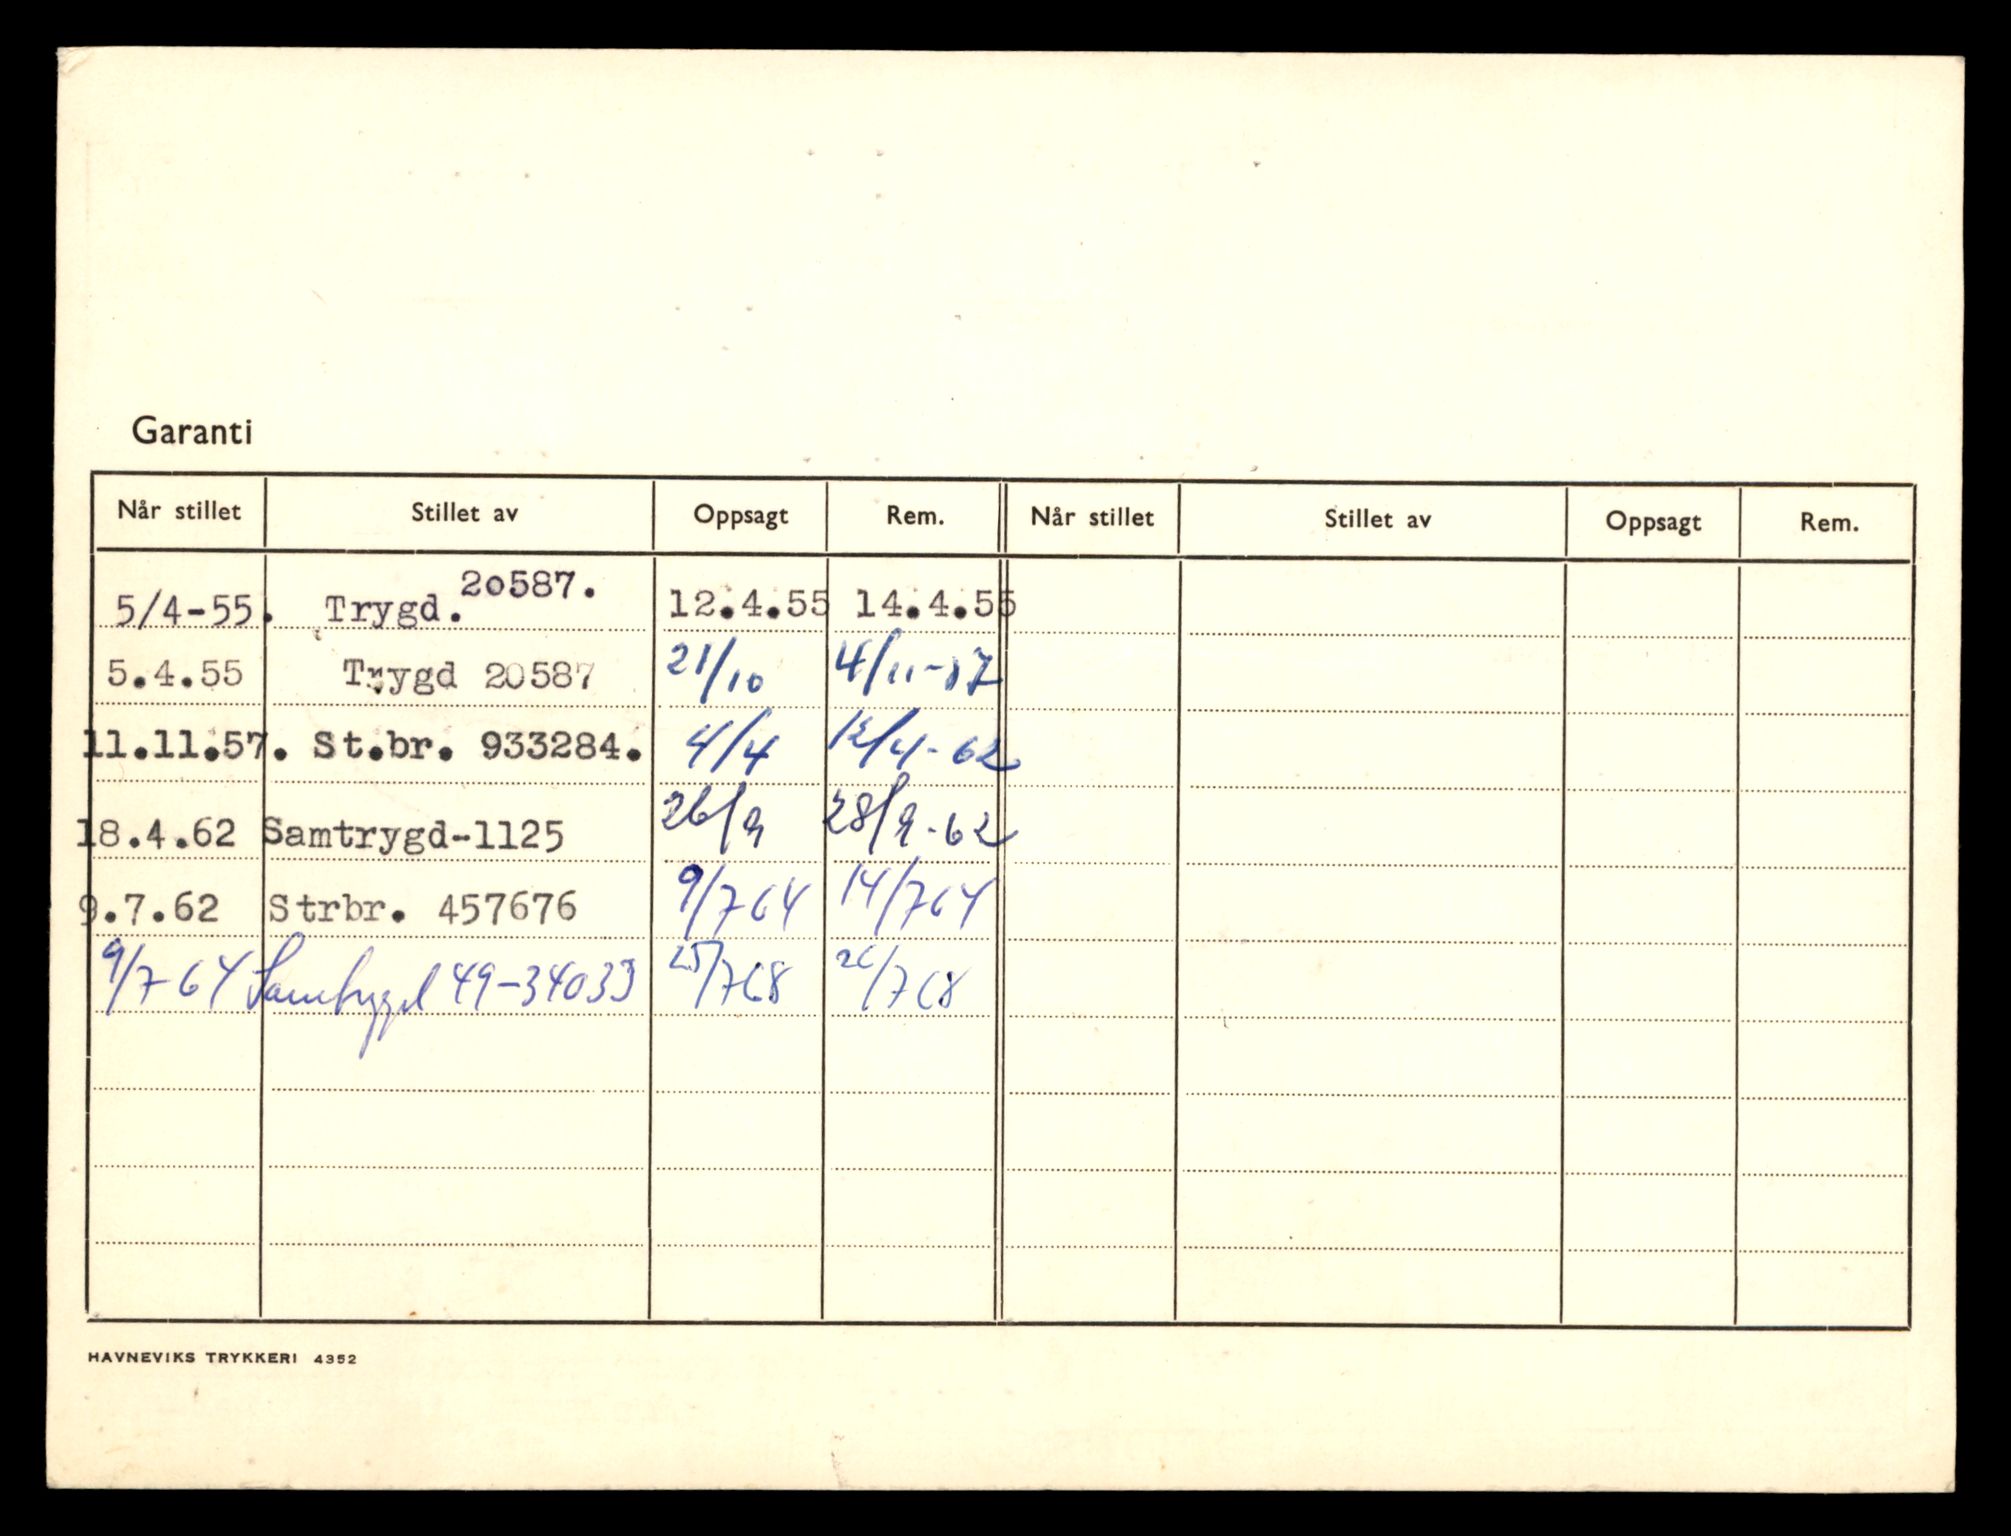 Garanti
Når stillet Stillet av Oppsagt Rem. Når stillet Stillet av Oppsagt Rem.
5/4-55. Trygd. 20587. 12.4.55 14.4.55
5.4.55 Trygd 20587 21/10 4/11-57
11.11.57. St.br. 933284. 4/4 12/4-62
18.4.62 Samtrygd-1125 26/9 28/9-62
9.7.62 Strbr. 457676 9/7 64 14/7 64
9/7-64 Samtrygd 49-34033 25/7 68 26/7 68
HAVNEVIKS TRYKKERI 4352